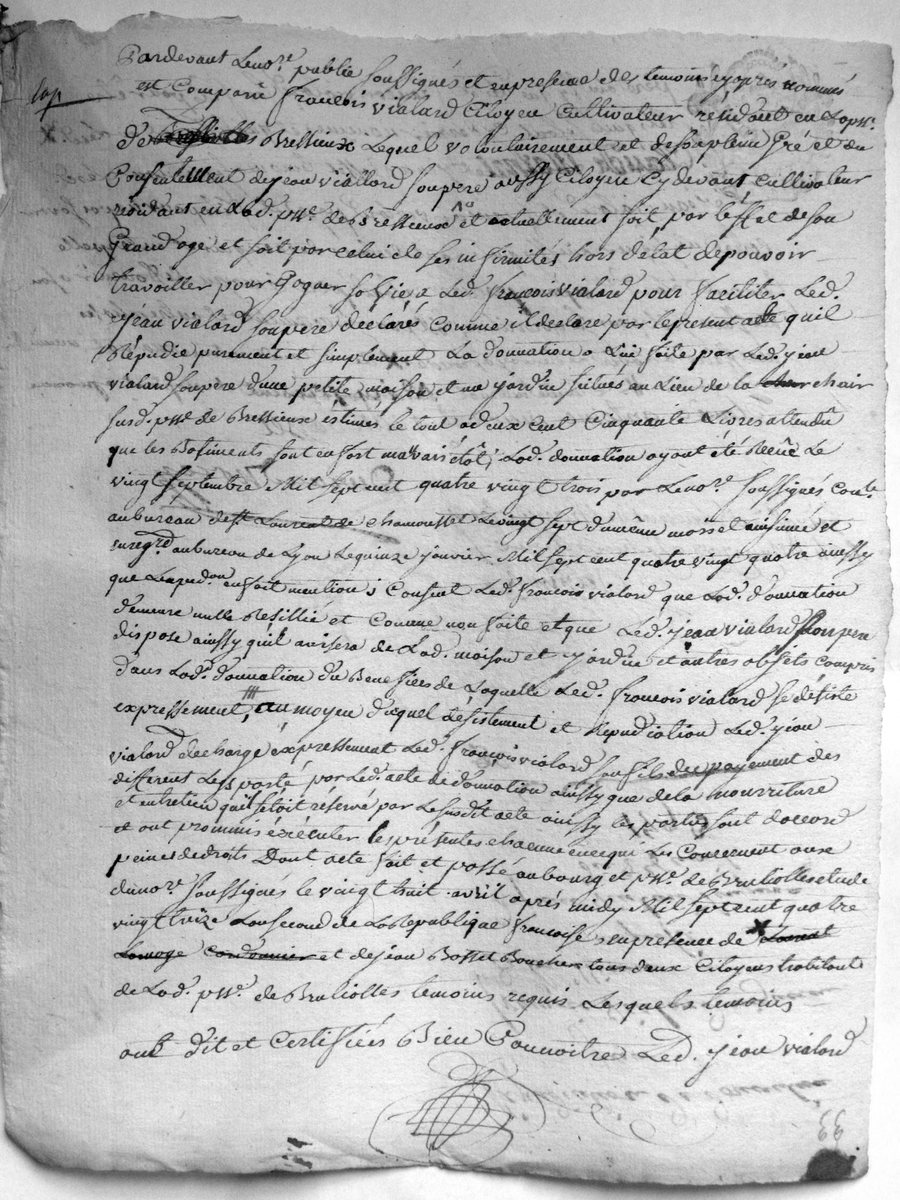 Pardevant Le no.re public soussignés et en presence des temoins cy aprés nommés
Exp
est Comparu François vialard Citoyen Cultivateur résidant en La p.sse
de Bressieux Lequel volontairement et de son plein Gré et du
Consentement de jean viallard son pere aussy Citoyen Cy devant cultivateur
residant en Lad. p.sse de Bressieux et actuellement soit par leffet de son
Grand age et soit par celui de ses infirmités hors detat de pouvoir
travailler pour Gagner sa vie a Led. françois vialard pour faciliter Led.
jean vialard son pere declarés comme il declare par le present acte quil
Répudie purement et simplement La donnation a Lui faite par Led. jean
vialard son pere d'une petite maison et un jardin situés au Lieu de la chair
susd. p.sse de Bressieux estimés le tout a deux cent Cinquante Livres attendu
que les Batiments sont en fort mauvais état, Lad. donnation ayant été Recüe Le
vingt septembre Mil sept cent quatre vingt trois par Le no.re soussignés Con.lé
au bureau de St Laurent de Chamousset Le vingt sept du même mois et insinué et
au bureau de Lyon Le quinze janvier Mil sept cent quatre vingt quatre ainssy
que en fait mention; Consent Led. françois vialard que Lad. donnation
demeure nulle Resilliée et Comme non faite et que Led. jean vialard son pere
dispose ainssy quil avisera de Lad. maison et jardin et autres objets compris
dans Lad. donnation du Benefices de Laquelle Led. françois vialard se désiste
expressement, au moyen duquel desistement et Repudiation Led. jean
vialard decharge expressement Led. françois vialard son fils du payement des
different Legs porté par Led. acte de donnation ainssy que de la nourriture
et entretien que setoit réservé par Le susdit acte ainssy les parties sont daccord
et ont prommis exécuter les présentes chacune en ce qui Les Concernent aux
peines de droits Dont acte fait et passé au bourg et p.sse de Brulliolles etude
du no.re soussignés le vingt huit avril aprés midy Mil sept cent quatre
vingt treize Lan second de La Republique françoise en presence de
Cordonnier et de jean Bosset Boucher tous deux Citoyens habitant
de Lad. p.sse de Brulliolles temoins requis Lesquels temoins
ont dit et Certifiées Bien Connoitre Led. jean vialard